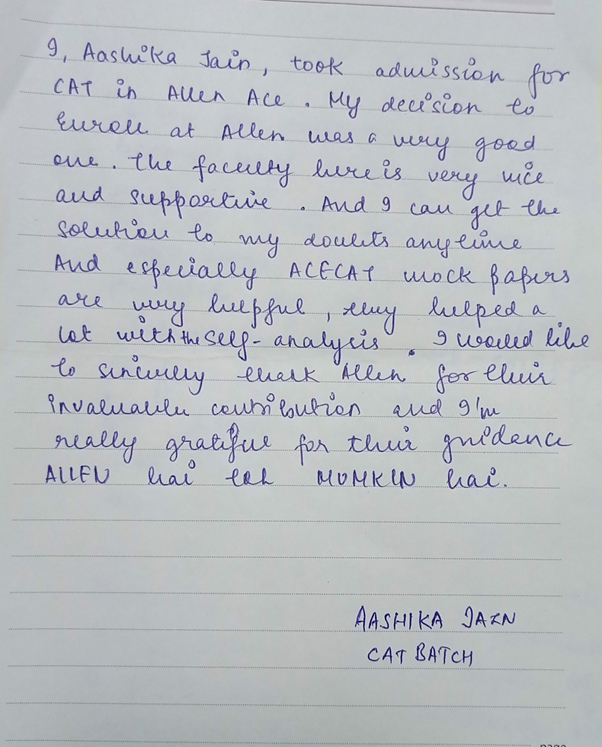 I, Aashika Jain, took admission for
CAT in Allen Ace. My decision to
Enroll at Allen was a very good
one. The faculty here is very nice
and supportive. And I can get the
solution to my doubts anytime
And especially ACECAT mock papers
are very helpful, they helped a
lot with the self-analysis. I would like
to sincerely thank Allen for their
invaluable contribution and I'm
really grateful for their guidance
ALLEN hai toh MUMKIN hai.
AASHIKA JAIN
CAT BATCH